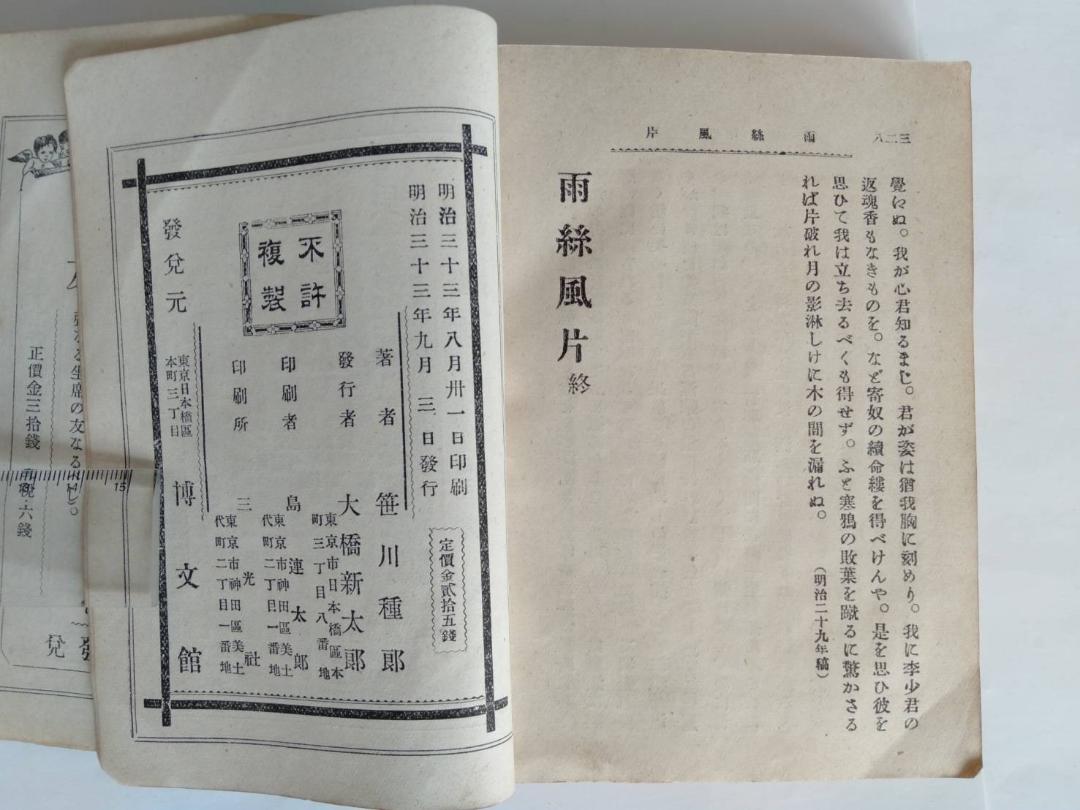 三二八
雨絲風片
覺にぬ。我が心君知るまじ。君が姿は猶我胸に刻めり。我に李少君の
返魂香もなきものを。など寄奴の續命縷を得べけんや。是を思ひ彼を
思ひて我は立ち去るべくも得せず。ふと寒鴉の敗葉を蹴るに驚かさる
れば片破れ月の影淋しけに木の間を漏れぬ。
(明治二十九年稿)
雨絲風片終
明治三十三年八月卅一日印刷
明治三十三年九月三日發行
定價金貳拾五錢
不許
複製
著者 笹川種郎
發行者 大橋新太郎
東京市日本橋區本
町三丁目八番地
印刷者 島連太郎
東京市神田區美土
代町二丁目一番地
印刷所 三光社
東京市神田區美土
代町二丁目一番地
發兌元
東京日本橋區
本町三丁目
博文館
坐席の友なる
正價金三拾錢
税六錢
15
兌